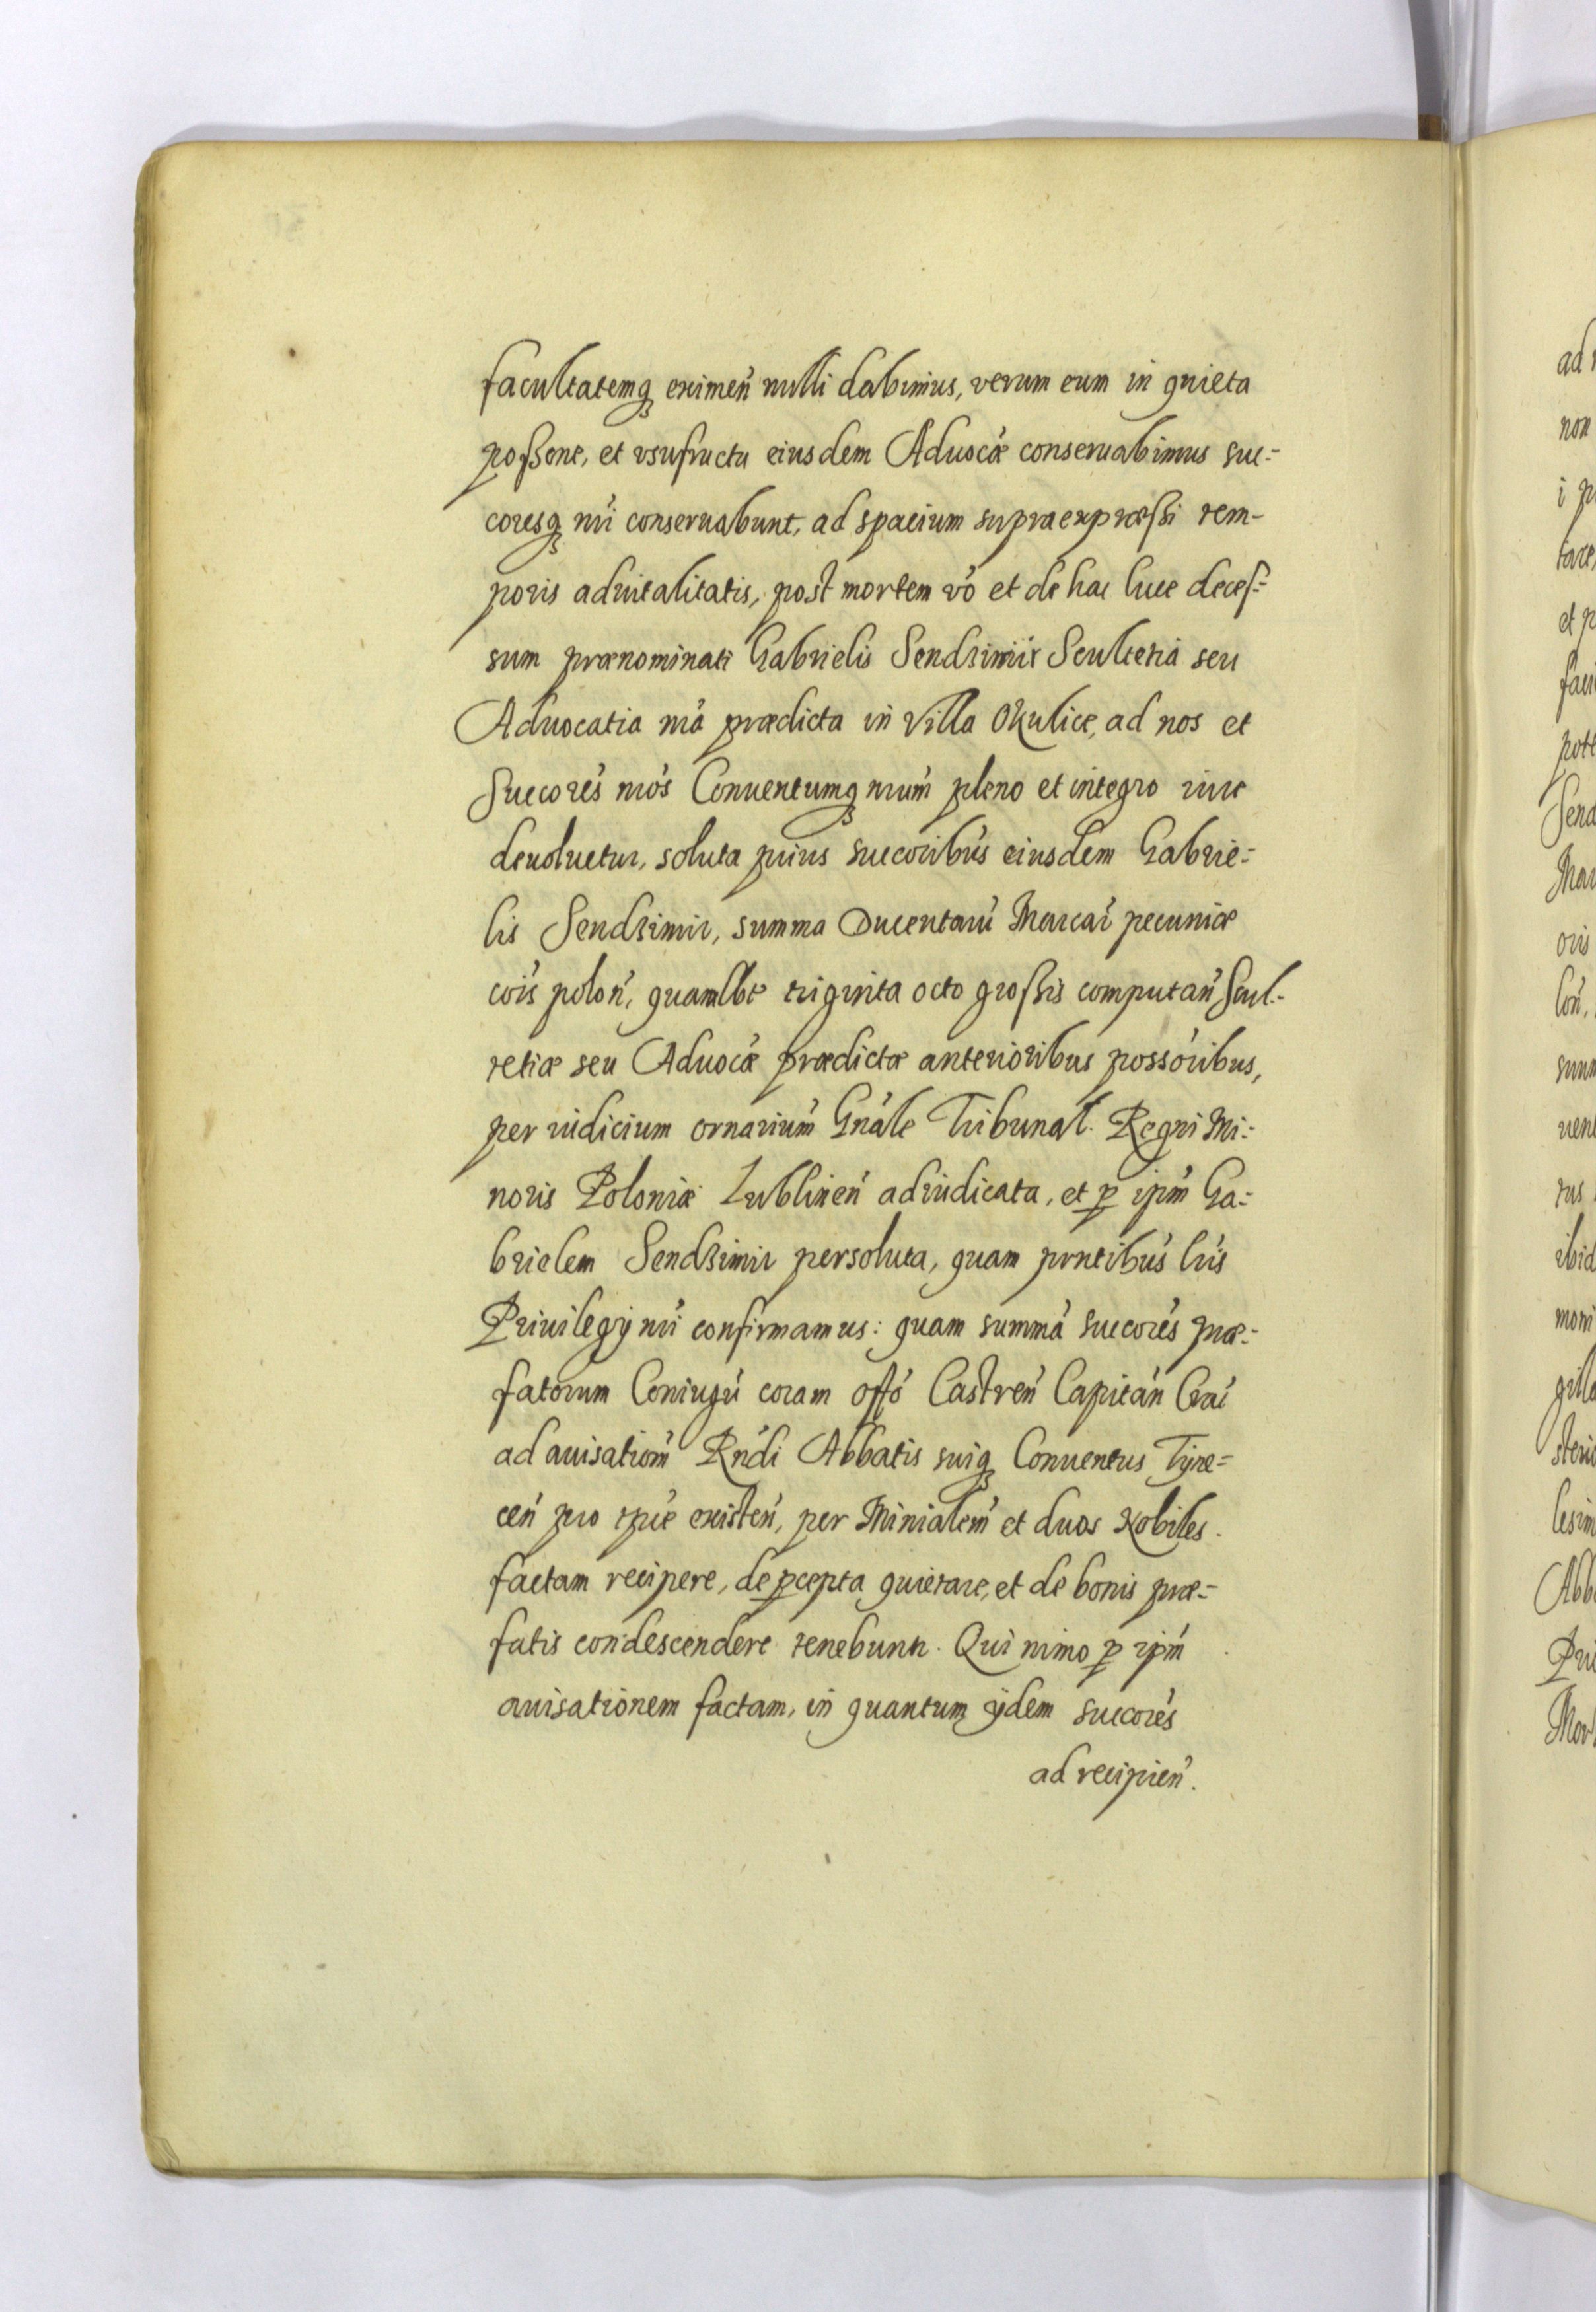 facultatemq̃ eximeñ nulli dabimus, verum eum in quieta
poßone, et vsufructu eiusdem Aduocæ conseruabimus suc-
coresq̃ nri conseruabunt, ad spacium supraexpræßi tem-
poris aduitalitatis, post mortem vo et de hac luce deceſ-
sum prænominati Gabrielis Sendzimiir Scultetia seu
Aduocatia nra prædicta in Villa Okulice, ad nos et
Succores nros Conuentumq̃ nrum pleno et integro iure
deuoluetur, soluta prius succoribus eiusdem Gabrie-
lis Sendzimir, summa Ducentarũ Marcar pecuniæ
cois poloñ, quamlbt triginta octo großis computañ Scul-
tetiæ seu Aduocæ prædictæ anterioribus possoribus,
per iudicium ornarium Gnale Tribunal. Regni Mi-
noris Poloniæ Lublineñ adiudicata, et p̱ ipm Ga-
brielem Sendzimir persoluta, quam prntibus lris
Priuilegij nri confirmamus: quam summã succores præ-
fatorum Coniugũ coram offo Castreñ Capitañ Crai
ad auisationem Rndi Abbatis suiq̃ Conuentus Tyne-
ceñ pro tpre existeñ, per Minialem et duos Nobiles.
factam recipere, de p̱cepta quietare, et de bonis præ-
fatis condescendere tenebuntr. Qui nimo p̱ ipm
auisationem factam, in quantum ijdem succores
ad recipieñ.